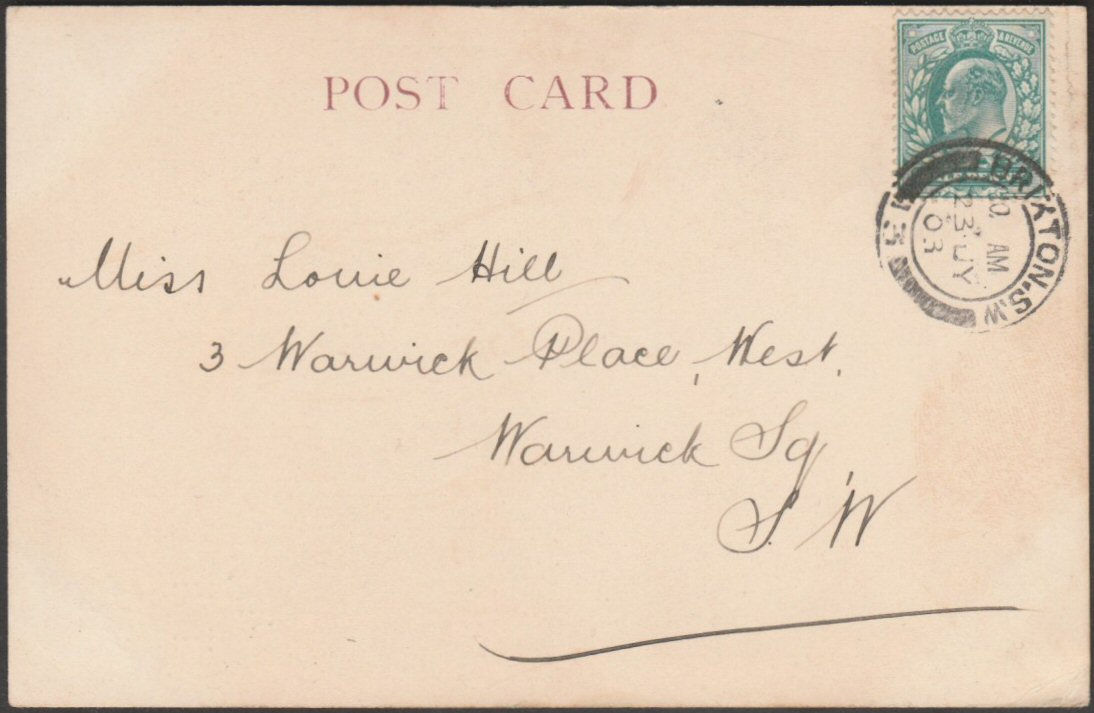 POST CARD
POSTAGE & REVENUE
BRIXTON.S.W
30 AM
23 JY
03
Miss Louie Hill
3 Warwick Place, West,
Warwick Sq,
S.W